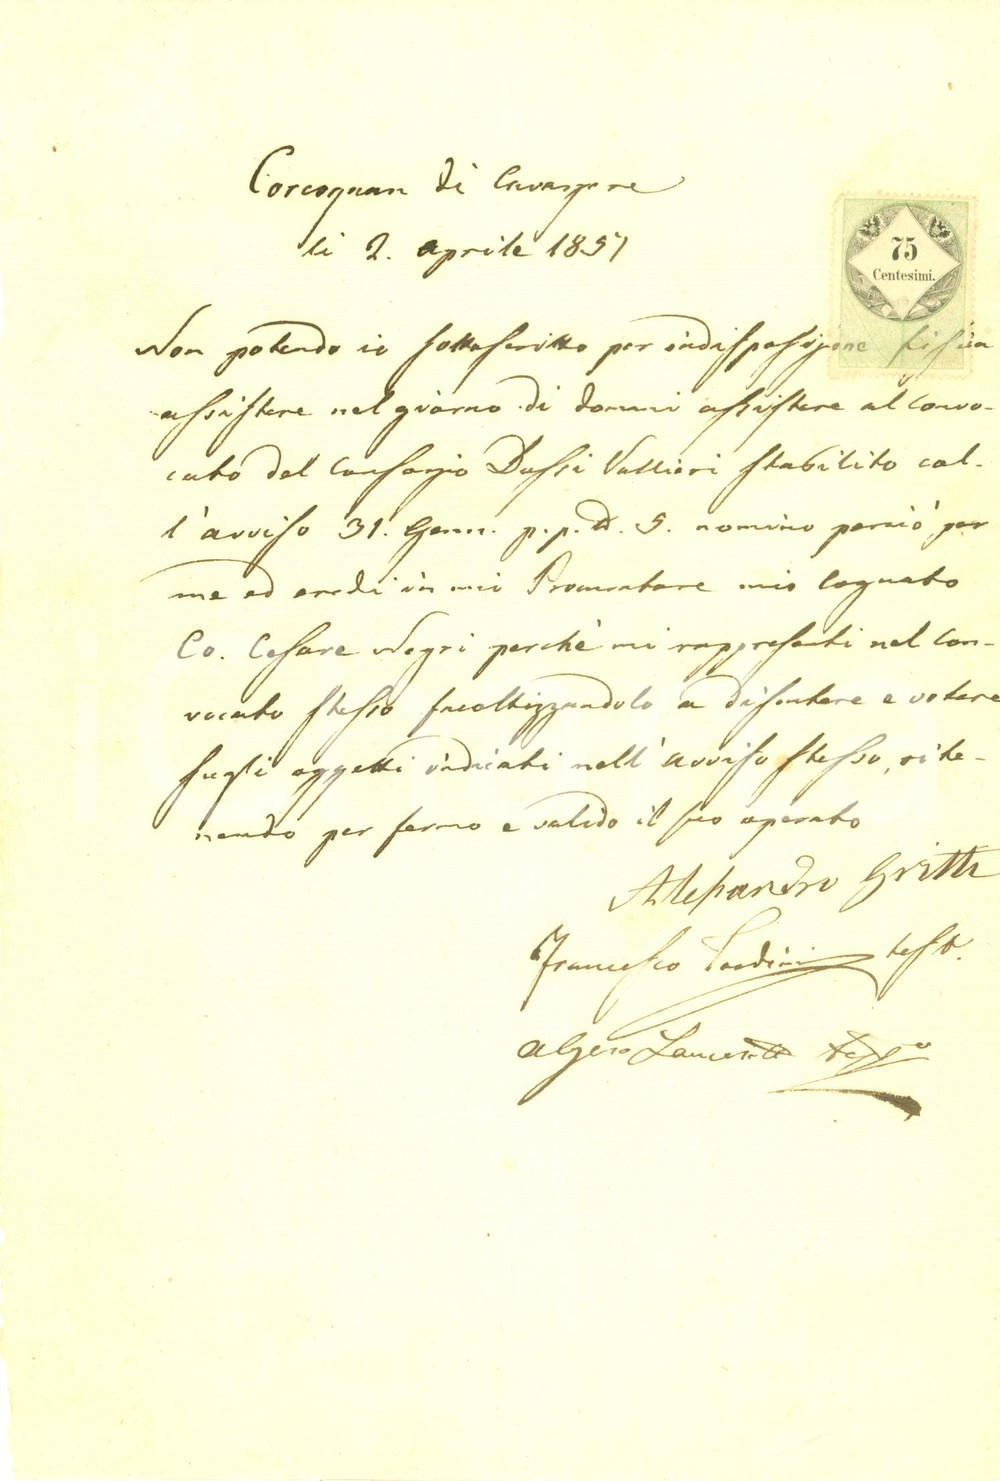 Corcognan di Cavarzere
li 2. aprile 1857
75
Centesimi.
Non potendo io sottoscritto per indisposizione fisica
assistere nel giorno di domni assistere al Convo-
cato del Consorzio Dossi Vallieri stabilito col-
l'avviso 31. Genn. p.p. N. 5. nomino perciò per
me ed eredi in mio Procuratore mio Cognato
Co. Cesare Negri perchè mi rappresenti nel Con-
vocato stesso facoltizzandolo a discutere e votare
sugli oggetti indicati nell'avviso stesso, rite-
nendo per fermo e valido il suo operato
Alessandro Gritti
Francesco test.